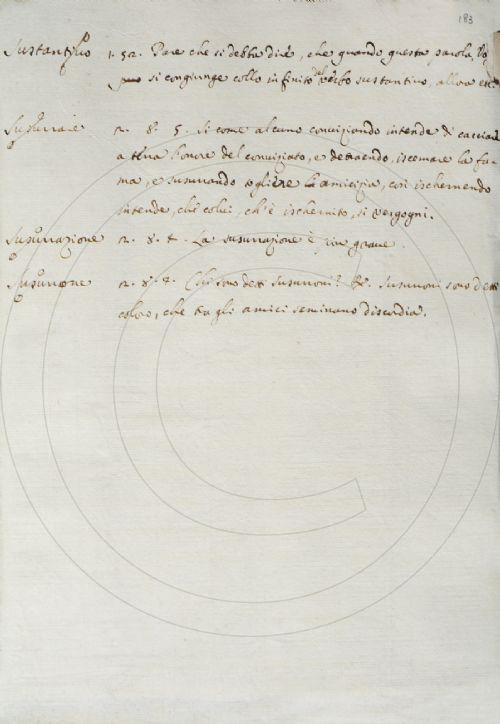 183
Sustantivo 1. 52. Pare che si debba dire, che quando questa parola,
si congiunge collo infinito del verbo sustantivo, allora
Susurrare 2. 8. 5. Si come alcuno conviziando intende di cacciare
a terra l'onore del conviziato, e detraendo, iscemare la fa-
ma, e susurrando togliere la amicizia, così ischernendo
intende, che colui, ch'è ischernito, si vergogni.
Susurrazione 2. 8. La susurrazione è più grave.
Susurrone 2. 8. Chi sono detti susurroni? Susurroni sono detti
coloro, che tra gli amici seminano discordia.